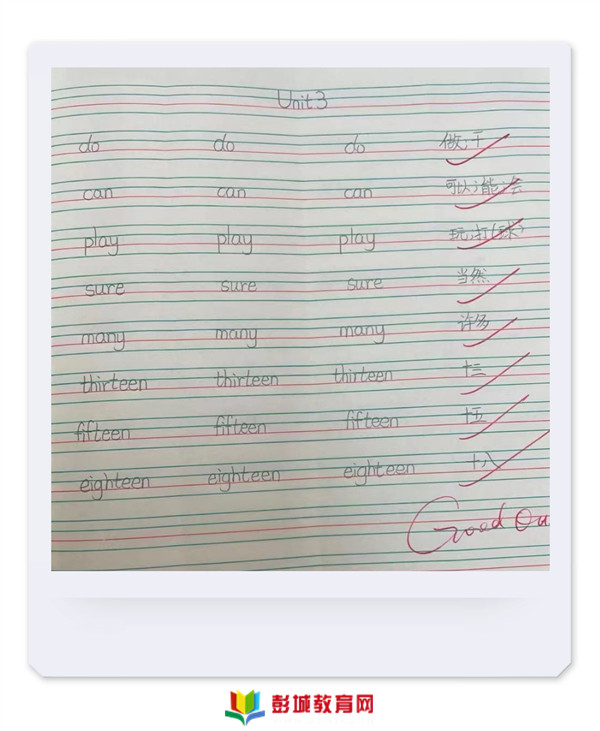 Unit 3
do do do 做;干
can can can 可以;能;会
play play play 玩;打(球)
sure sure sure 当然
many many many 许多
thirteen thirteen thirteen 十三
fifteen fifteen fifteen 十五
eighteen eighteen eighteen 十八
Good
彭城教育网